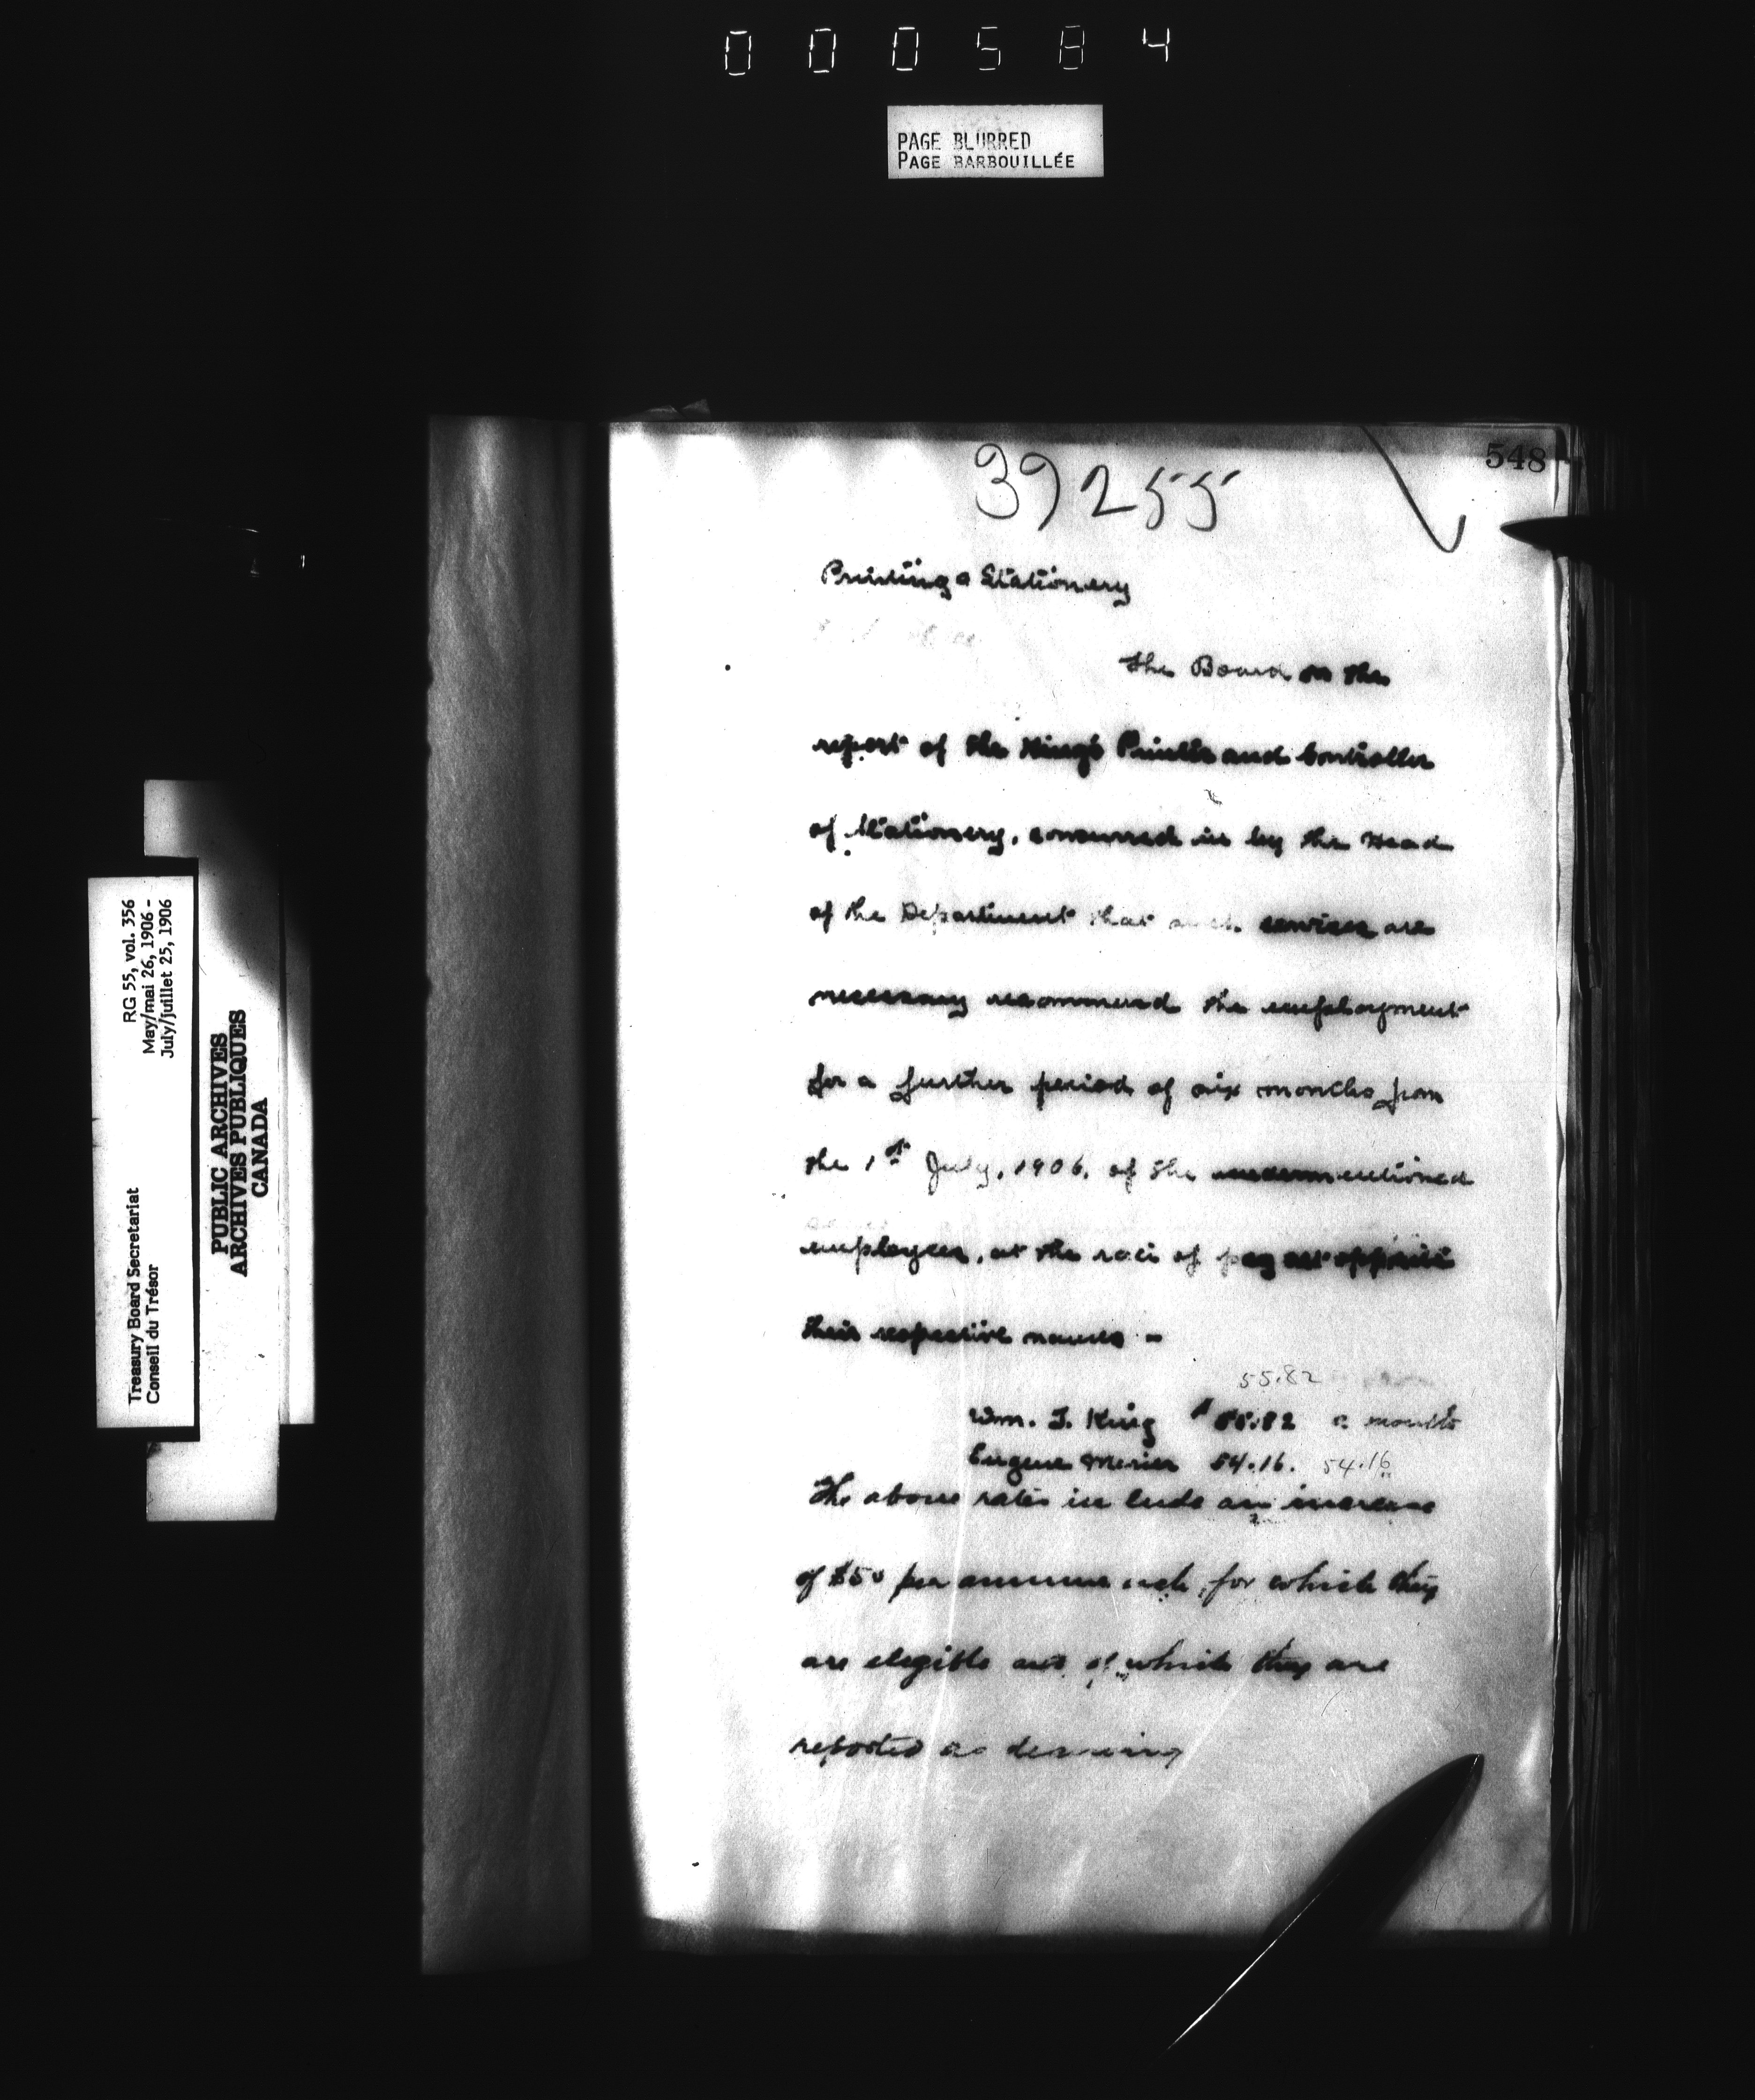 000584
PAGE BLURRED
PAGE BARBOUILLÉE
548
39255
Printing & Stationery
The Board on the
report of the King's Printer and Controller
of Stationery, concurred in by the Head
of the Department that such services are
necessary recommend the employment
for a further period of six months from
the 1st July, 1906, of the undermentioned
employees, at the rate of pay set opposite
their respective names –
55.82
Wm. J. King $55.82 a month
Eugene 54.16. 54.16
The above rates include an increase
of $50 per annum each, for which they
are elegible and of which they are
reported as deserving
RG 55, vol. 356
May/mai 26, 1906 -
July/juillet 25, 1906
Treasury Board Secretariat
Conseil du Trésor
PUBLIC ARCHIVES
ARCHIVES PUBLIQUES
CANADA